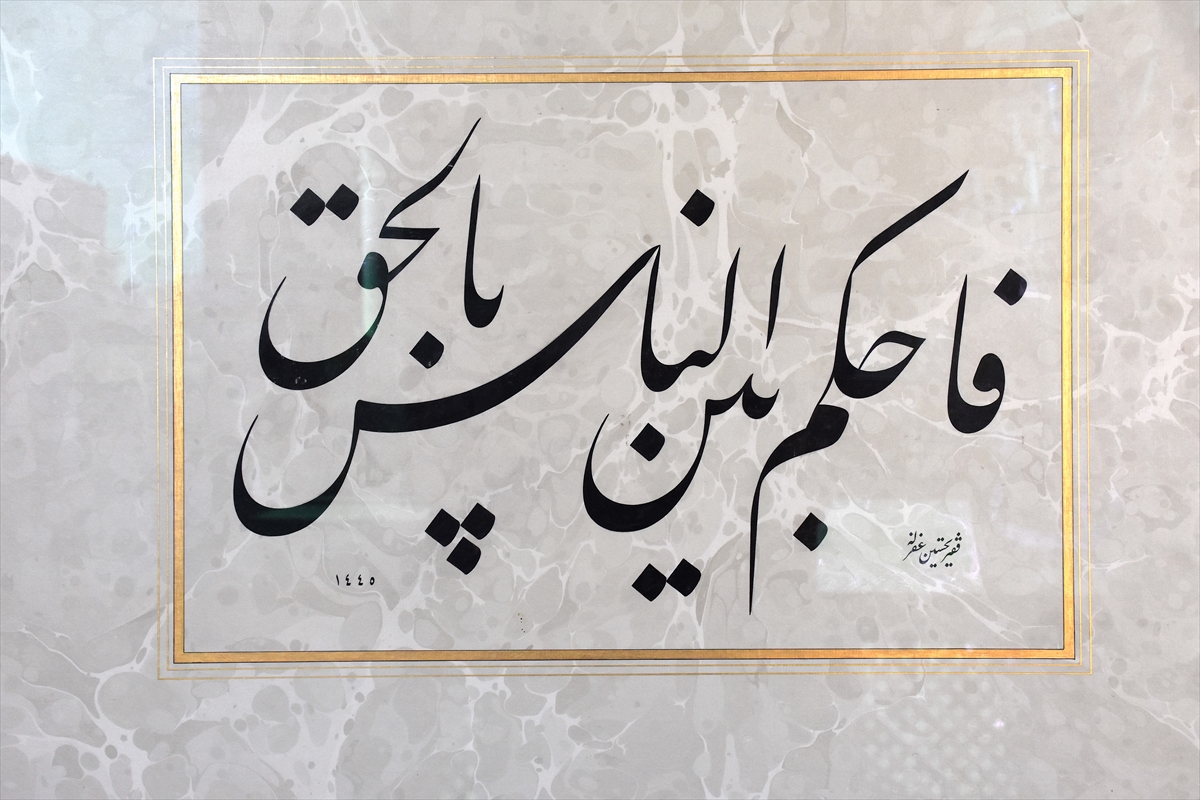 فاحكم بين الناس بالحق
فقير تحسين غفرله
١٤٤٥